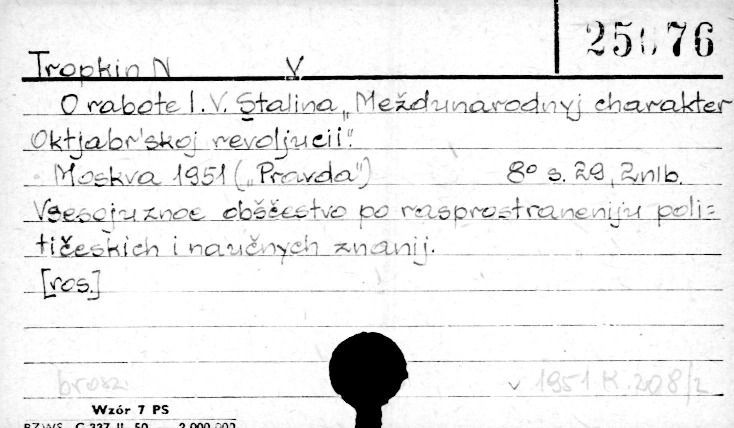 25 676
Tropkin N V
O rabote I. V. Stalina „Meždunarodnyj charakter
Oktjabr'skoj revoljucii".
Moskva 1951 („Pravda") 8° s. 29, 2nlb.
Vsesojuznoe obščestvo po rasprostraneniju poli=
tičeskich i naučnych znanij.
[ros.]
brosz. v 1951 K. 208/2
Wzór 7 PS
PZWS G 337 II. 50 — 2.000.000